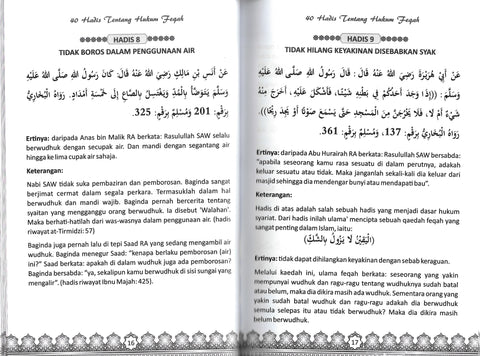 40 Hadis Tentang Hukum Feqah
HADIS 8
TIDAK BOROS DALAM PENGGUNAAN AIR
عَنْ أَنَسِ بْنِ مَالِكٍ رَضِيَ اللهُ عَنْهُ قَالَ: كَانَ رَسُولُ اللهِ صَلَّى اللهُ عَلَيْهِ
وَسَلَّمَ يَتَوَضَّأُ بِالْمُدِّ وَيَغْتَسِلُ بِالصَّاعِ إِلَى خَمْسَةِ أَمْدَادٍ. رَوَاهُ الْبُخَارِيُّ
بِرَقَمِ: 201 وَمُسْلِمٌ بِرَقَمِ: 325.
Ertinya: daripada Anas bin Malik RA berkata: Rasulullah SAW selalu
berwudhuk dengan secupak air. Dan mandi dengan segantang air
hingga ke lima cupak air sahaja.
Keterangan:
Nabi SAW tidak suka pembaziran dan pemborosan. Baginda sangat
berjimat cermat dalam segala perkara. Termasuklah dalam hal
berwudhuk dan mandi wajib. Baginda pernah bercerita tentang
syaitan yang mengganggu orang berwudhuk. Ia disebut 'Walahan'.
Maka berhati-hatilah dari was-was dalam penggunaan air. (hadis
riwayat at-Tirmidzi: 57)
Baginda juga pernah lalu di tepi Saad RA yang sedang mengambil air
wudhuk. Baginda menegur Saad: "kenapa berlaku pemborosan (air)
ini?" Saad berkata: apakah di dalam wudhuk juga ada pemborosan?
Baginda bersabda: "ya, sekalipun kamu berwudhuk di sisi sungai yang
mengalir". (hadis riwayat Ibnu Majah: 425).
16
40 Hadis Tentang Hukum Feqah
HADIS 9
TIDAK HILANG KEYAKINAN DISEBABKAN SYAK
عَنْ أَبِي هُرَيْرَةَ رَضِيَ اللهُ عَنْهُ قَالَ: قَالَ رَسُولُ اللهِ صَلَّى اللهُ عَلَيْهِ
وَسَلَّمَ: ((إِذَا وَجَدَ أَحَدُكُمْ فِي بَطْنِهِ شَيْئًا، فَأَشْكَلَ عَلَيْهِ، أَخَرَجَ مِنْهُ
شَيْءٌ أَمْ لَا، فَلَا يَخْرُجَنَّ مِنَ الْمَسْجِدِ حَتَّى يَسْمَعَ صَوْتًا أَوْ يَجِدَ رِيحًا)).
رَوَاهُ الْبُخَارِيُّ بِرَقَمِ: 137، وَمُسْلِمٌ بِرَقَمِ: 361.
Ertinya: daripada Abu Hurairah RA berkata: Rasulullah SAW bersabda:
"apabila seseorang kamu rasa sesuatu di dalam perutnya, adakah
keluar sesuatu atau tidak. Maka janganlah sekali-kali dia keluar dari
masjid sehingga dia mendengar bunyi atau mendapati bau".
Keterangan:
Hadis di atas adalah salah sebuah hadis yang menjadi dasar hukum
syariat. Dari hadis inilah ulama' mencipta sebuah qaedah feqah yang
sangat penting dalam Islam, iaitu:
(الْيَقِيْنُ لَا يَزُوْلُ بِالشَّكِّ)
Ertinya: tidak dapat dihilangkan keyakinan dengan sebab keraguan.
Melalui kaedah ini, ulama feqah berkata: seseorang yang yakin
mempunyai wudhuk dan ragu-ragu tentang wudhuknya sudah batal
atau belum, maka dia dikira masih ada wudhuk. Sementara orang yang
yakin sudah batal wudhuk dan ragu-ragu adakah dia berwudhuk
semula selepas itu atau tidak berwudhuk? Maka dia dikira masih
belum berwudhuk.
17